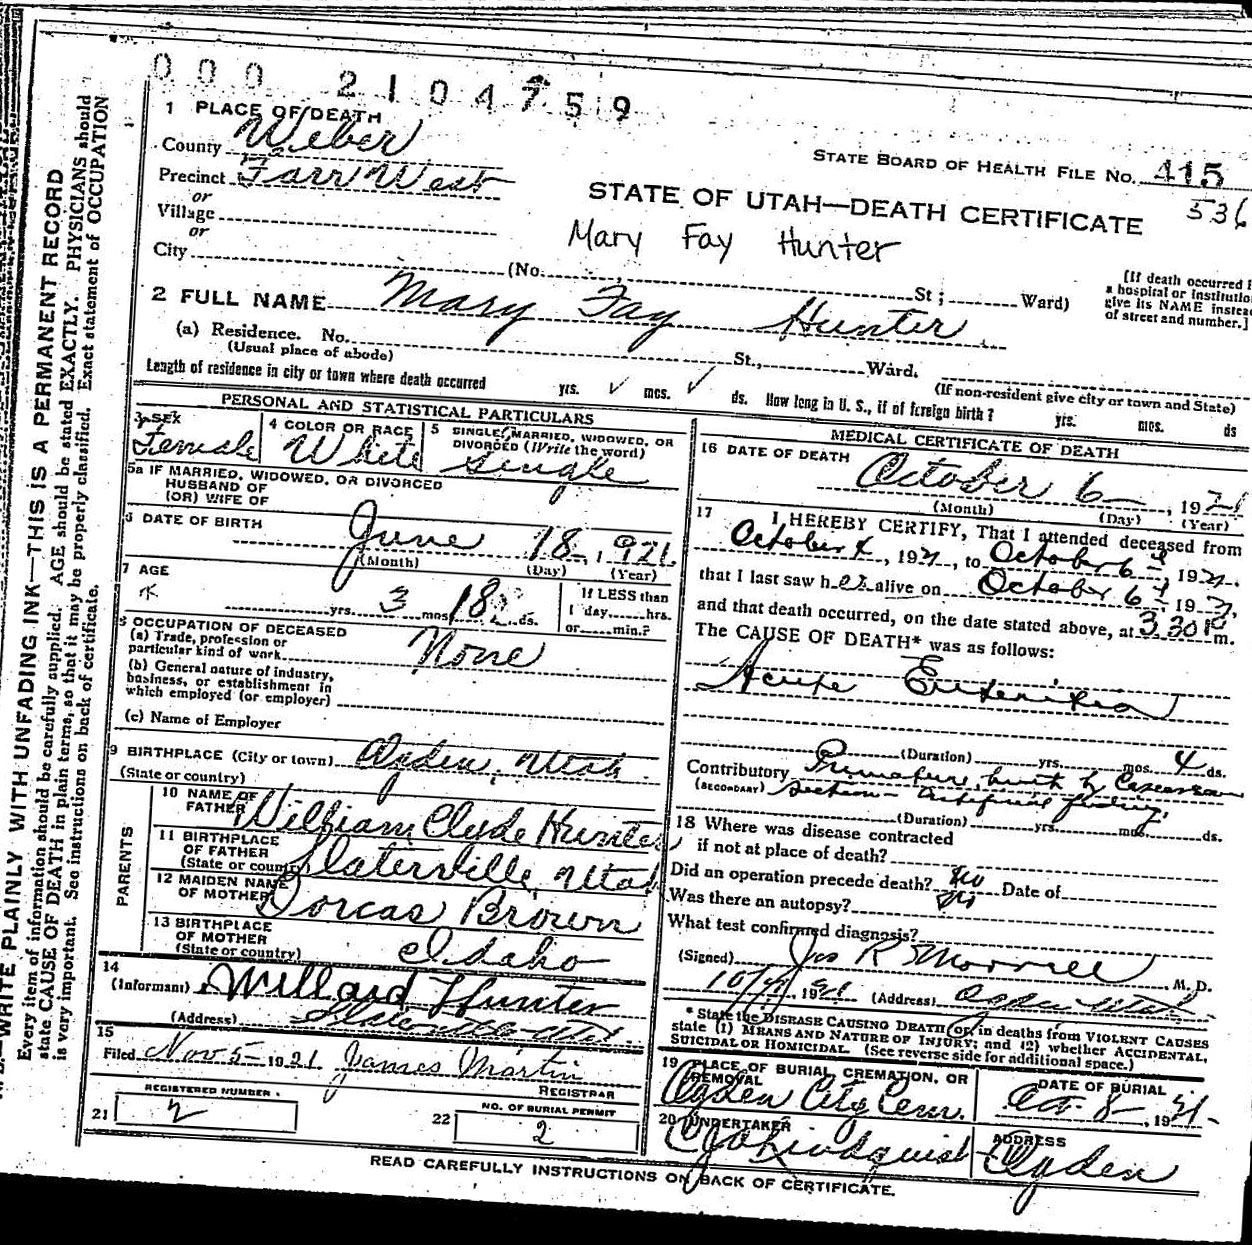 000 2104759
1 PLACE OF DEATH
County Weber
STATE BOARD OF HEALTH FILE NO. 415
Precinct Farr West
536
or
STATE OF UTAH—DEATH CERTIFICATE
Village
or
Mary Fay Hunter
City
(No. St; Ward)
[If death occurred
a hospital or institution
give its NAME instead
of street and number.]
2 FULL NAME Mary Fay Hunter
(a) Residence. No. St., Ward.
(Usual place of abode)
(If non-resident give city or town and State)
Length of residence in city or town where death occurred yrs. ✓ mos. ✓ ds. How long in U. S., if of foreign birth? yrs. mos. ds
PERSONAL AND STATISTICAL PARTICULARS
3 SEX
Female
4 COLOR OR RACE
White
5 SINGLE, MARRIED, WIDOWED, OR
DIVORCED (Write the word)
Single
5a IF MARRIED, WIDOWED, OR DIVORCED
HUSBAND OF
(OR) WIFE OF
6 DATE OF BIRTH
June 18-, 1921
(Month) (Day) (Year)
7 AGE
yrs. 3 mos. 18 ds.
If LESS than
1 day hrs.
or min.?
8 OCCUPATION OF DECEASED
(a) Trade, profession or
particular kind of work None
(b) General nature of industry,
business, or establishment in
which employed (or employer)
(c) Name of Employer
9 BIRTHPLACE (City or town) Ogden, Utah
(State or country)
PARENTS
10 NAME OF
FATHER William Clyde Hunter
11 BIRTHPLACE
OF FATHER
(State or country) Slaterville, Utah
12 MAIDEN NAME
OF MOTHER Dorcas Brown
13 BIRTHPLACE
OF MOTHER
(State or country) Idaho
14
(Informant) Willard Hunter
(Address) Slaterville Utah
15
Filed Nov 5- 1921 James Martin
REGISTRAR
21
REGISTERED NUMBER
2
22
NO. OF BURIAL PERMIT
2
MEDICAL CERTIFICATE OF DEATH
16 DATE OF DEATH
October 6-, 1921
(Month) (Day) (Year)
17 I HEREBY CERTIFY, That I attended deceased from
October 4, 1921, to October 6th, 1921.
that I last saw her alive on October 6th 1921,
and that death occurred, on the date stated above, at 3 30 P. m.
The CAUSE OF DEATH* was as follows:
Acute
(Duration) yrs. mos. 4 ds.
Contributory Premature, birth by Caesarean
(SECONDARY) Section - Artificial feeding.
(Duration) yrs. mos. ds.
18 Where was disease contracted
if not at place of death?
Did an operation precede death? No Date of
Was there an autopsy? No
What test confirmed diagnosis?
(Signed) Jos R Morrell, M. D.
1921 (Address) Ogden Utah
* State the DISEASE CAUSING DEATH, or, in deaths from VIOLENT CAUSES
state (1) MEANS AND NATURE OF INJURY; and (2) whether ACCIDENTAL,
SUICIDAL OR HOMICIDAL. (See reverse side for additional space.)
19 PLACE OF BURIAL, CREMATION, OR
REMOVAL
Ogden City Cem.
DATE OF BURIAL
Oct. 8-, 1921-
20 UNDERTAKER
Lindquist
ADDRESS
Ogden
READ CAREFULLY INSTRUCTIONS ON BACK OF CERTIFICATE.
WRITE PLAINLY WITH UNFADING INK—THIS IS A PERMANENT RECORD
Every item of information should be carefully supplied. AGE should be stated EXACTLY. PHYSICIANS should
state CAUSE OF DEATH in plain terms, so that it may be properly classified. Exact statement of OCCUPATION
is very important. See instructions on back of certificate.